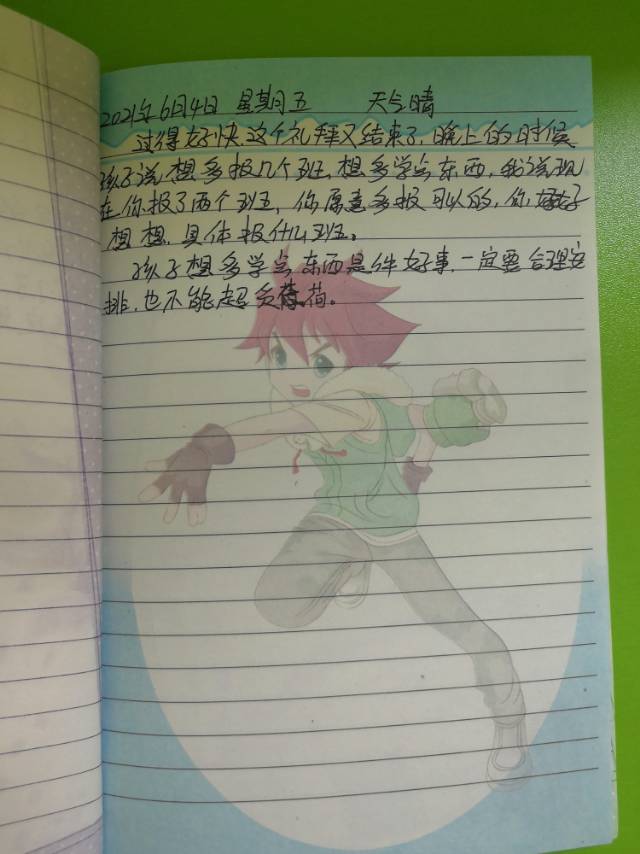 2021年6月4日 星期五 天气晴
过得好快,这个礼拜又结束了,晚上的时候
孩子说想多报几个班,想多学点东西,我说现
在你报了两个班,你愿意多报可以的,你好好
想想,具体报什么班。
孩子想多学点东西是件好事,一定要合理安
排,也不能超负荷。